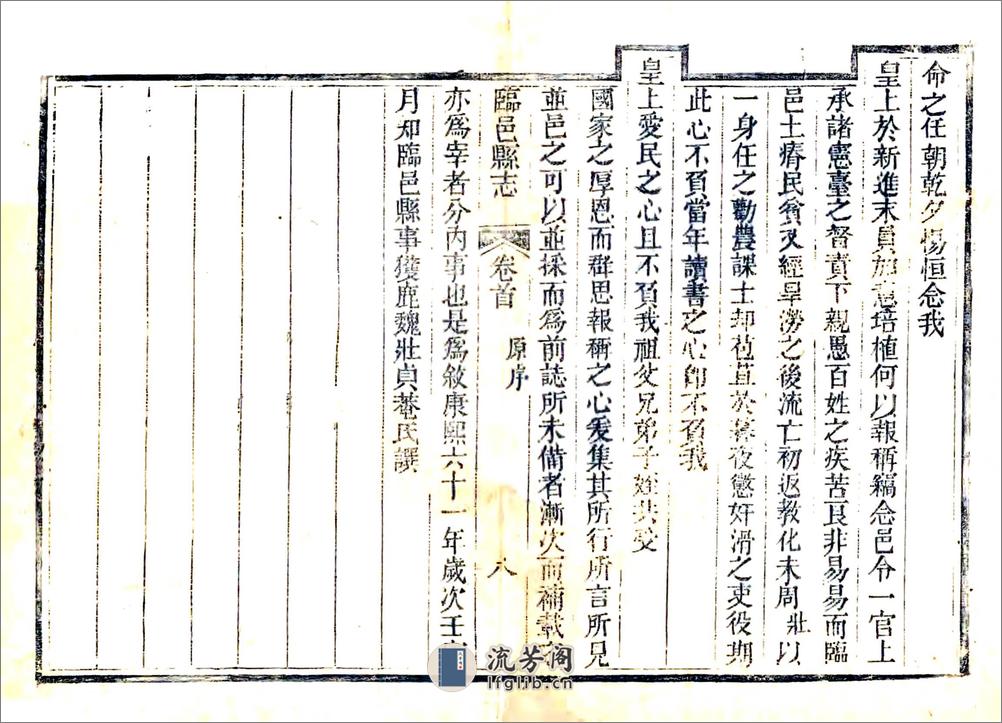 命之任朝乾夕惕恒念我
皇上於新進末員加意培植何以報稱竊念邑令一官上
承諸憲臺之督責下親愚百姓之疾苦良非易易而臨
邑土瘠民貧又經旱澇之後流亡初返教化未周壯以
一身任之勸農課士却苞苴於暮夜懲奸滑之吏役期
此心不負當年讀書之心卽不負我
皇上愛民之心且不負我祖父兄弟子姪共受
國家之厚恩而群思報稱之心爰集其所行所言所見
並邑之可以並採而爲前誌所未備者漸次而補載
臨邑縣志 卷首 原序 八
亦爲宰者分內事也是爲敘康熙六十一年歲次壬
月知臨邑縣事獲鹿魏壯貞菴氏譔
流芳阁
lfglib.cn